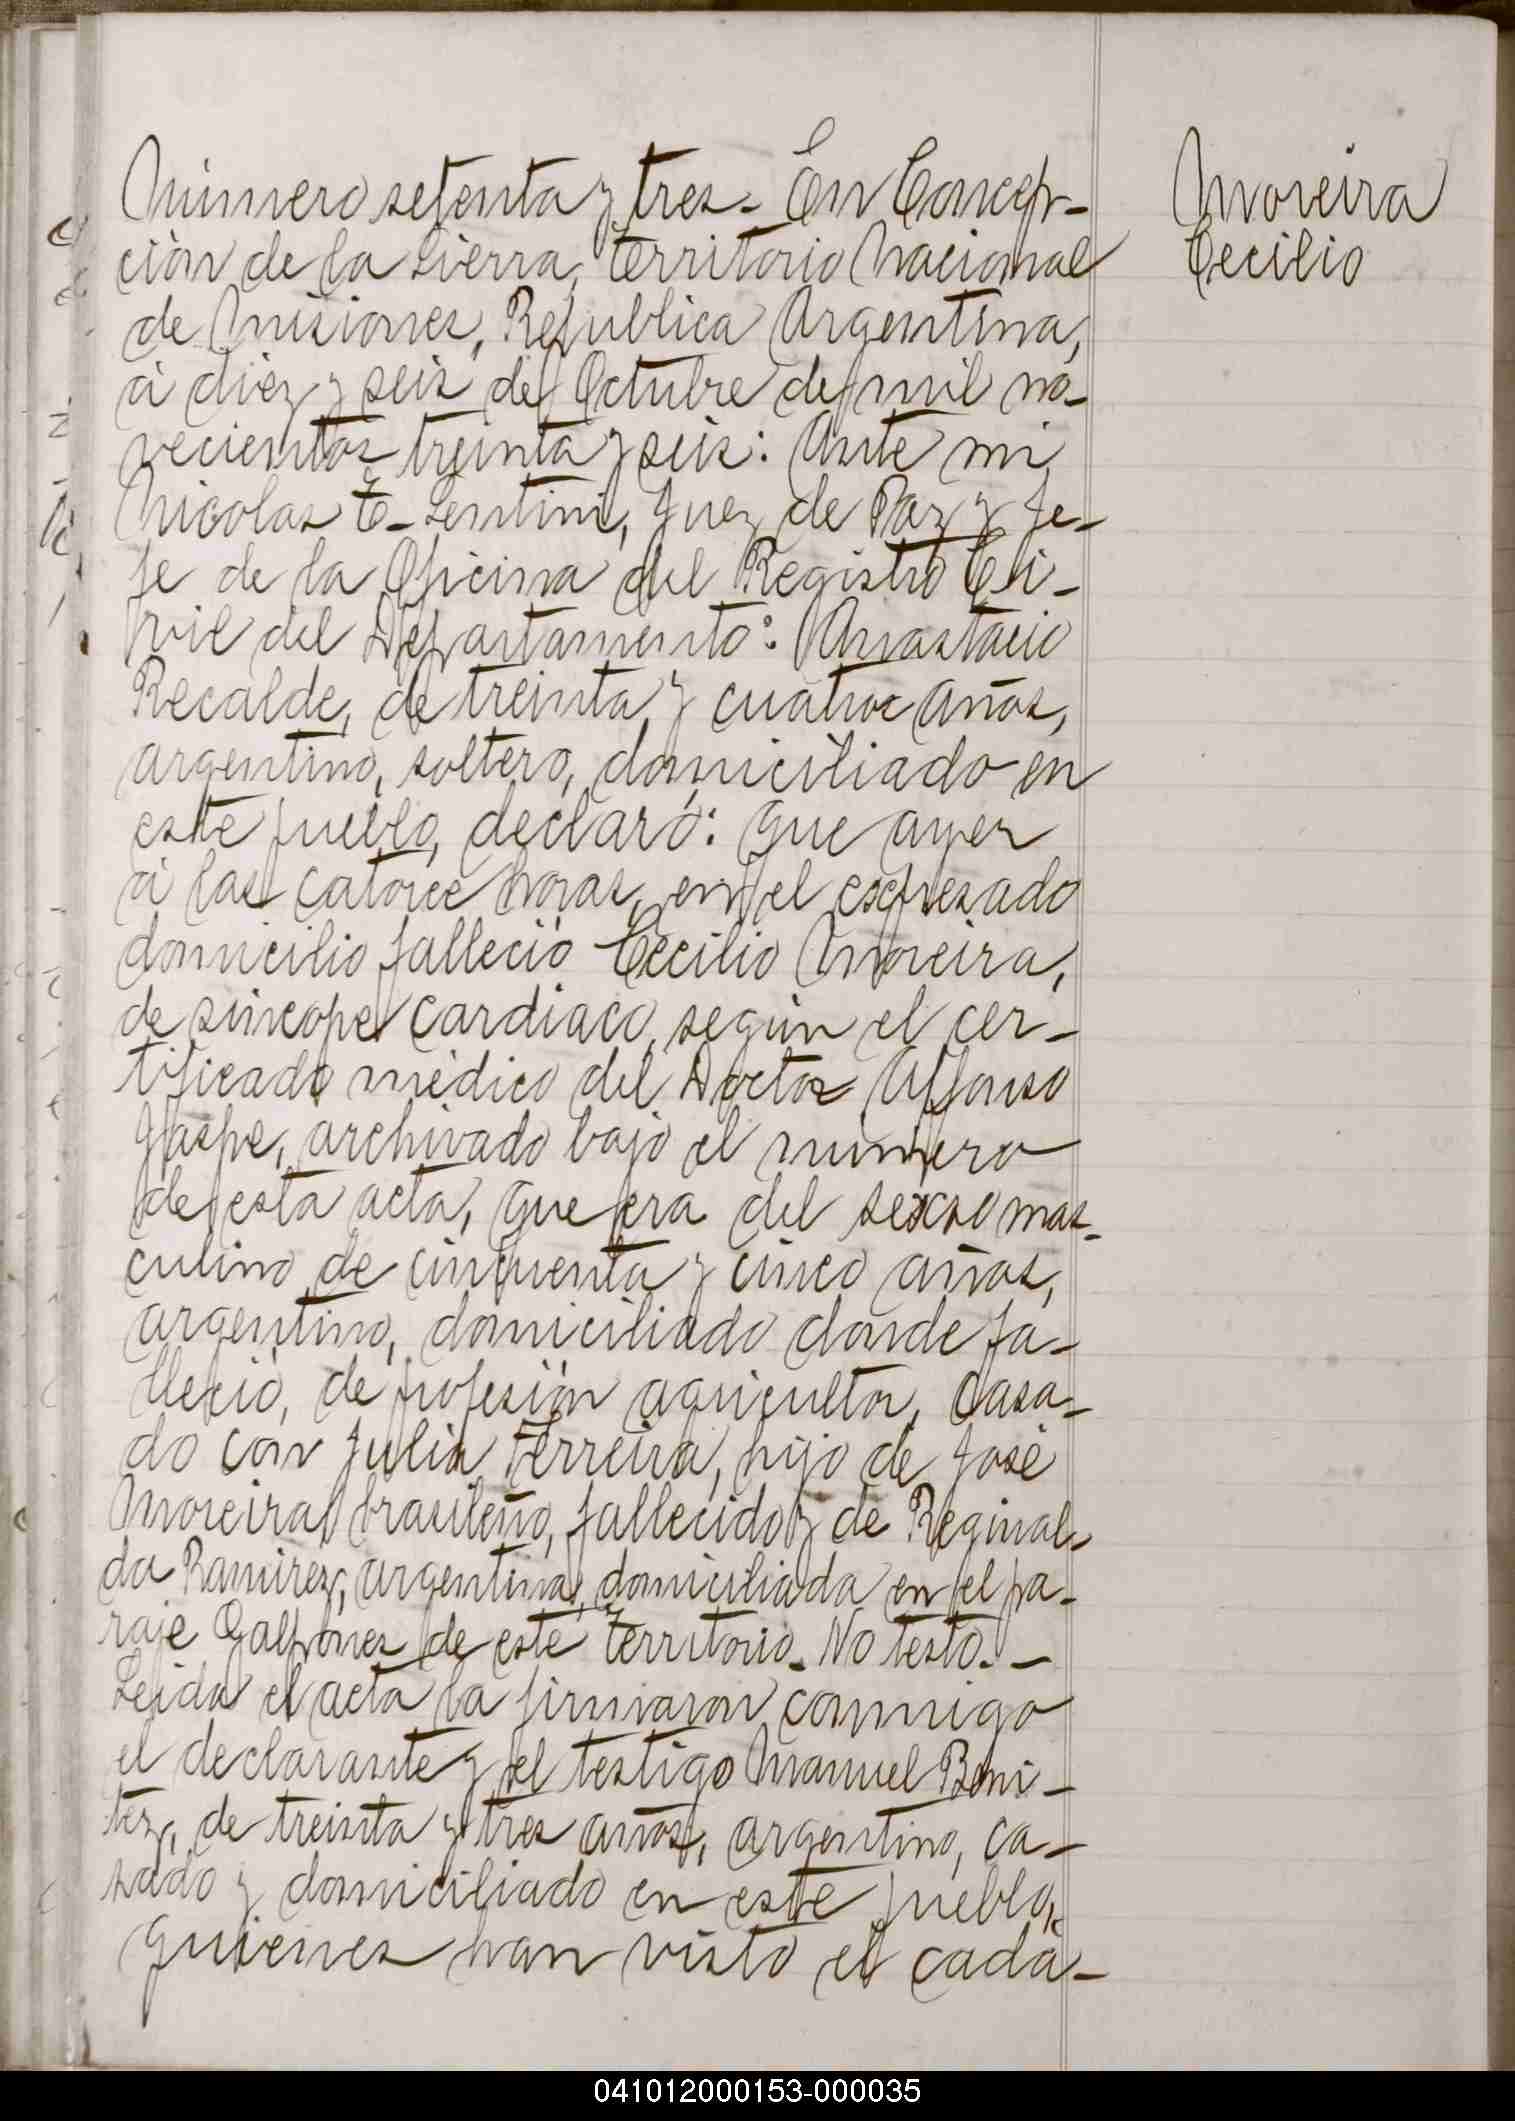 Número setenta y tres. En Concep-
ción de la Sierra, Territorio Nacional
de Misiones, Republica Argentina,
á diez y seis de Octubre de mil no-
vecientos treinta y seis: Ante mi,
Nicolas E. Sentini, Juez de Paz y Je-
fe de la Oficina del Registro Ci-
vil del Departamento: Anastacio
Recalde, de treinta y cuatro años,
argentino, soltero, domiciliado en
este pueblo, declaró: Que ayer
á las catorce horas, en el expresado
domicilio falleció Cecilio Moreira,
de síncope cardiaco, según el cer-
tificado médico del Doctor Alfonso
archivado bajo el número
de esta acta, que era del sexso mas-
culino de cincuenta y cinco años,
argentino, domiciliado donde fa-
lleció, de profesión agricultor, casa-
do con Julia Ferreira, hijo de José
Moreira, brasileño, fallecido y de Reginal-
da Ramirez, argentina, domiciliada en el pa-
raje Galpones de este Territorio. No testó.-
Leida el acta la firmaron conmigo
el declarante y el testigo Manuel Beni-
tez, de treinta y tres años, argentino, ca-
sado y domiciliado en este pueblo,
quienes han visto el cadá-
Moreira
Cecilio
041012000153-000035